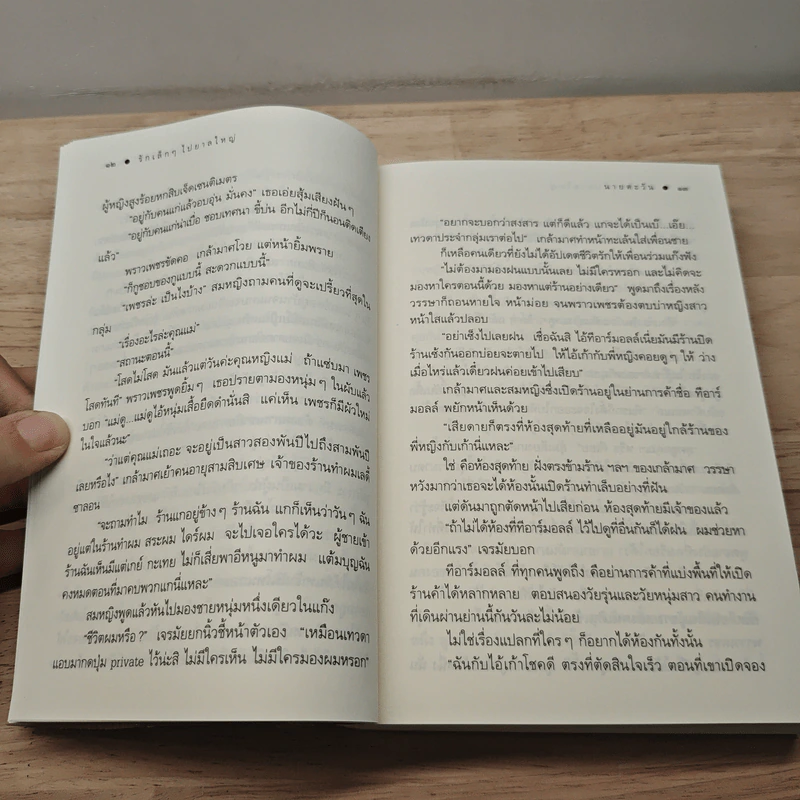 ๑๒ ● รักเล็กๆ ไปยาลใหญ่
ผู้หญิงสูงร้อยหกสิบเจ็ดเซนติเมตร
"อยู่กับคนแก่แล้วอบอุ่น มั่นคง" เธอเอ่ยสุ้มเสียงฝันๆ
"อยู่กับคนแก่น่าเบื่อ ชอบเทศนา ขี้บ่น อีกไม่กี่ปีก็นอนติดเตียง
แล้ว"
พราวเพชรขัดคอ เกล้ามาศโวย แต่หน้ายิ้มพราย
"ก็กูชอบของกูแบบนี้ สะดวกแบบนี้"
"เพชรล่ะ เป็นไงบ้าง" สมหญิงถามคนที่ดูจะเปรี้ยวที่สุดใน
กลุ่ม
"เรื่องอะไรล่ะคุณแม่"
"สถานะตอนนี้"
"โสดไม่โสด มันแล้วแต่วันค่ะคุณหญิงแม่ ถ้าแซ่บมา เพชร
โสดทันที" พราวเพชรพูดยิ้มๆ เธอปรายตามองหนุ่มๆ ในผับแล้ว
บอก "แม่ดู...แม่ดูไอ้หนุ่มเสื้อยืดดำนั่นสิ แค่เห็น เพชรก็มีผัวใหม่
ในใจแล้วนะ"
"ว่าแต่คุณแม่เถอะ จะอยู่เป็นสาวสองพันปีไปถึงสามพันปี
เลยหรือไง" เกล้ามาศเย้าคนอายุสามสิบเศษ เจ้าของร้านทำผมเลดี้
ซาลอน
"จะถามทำไม ร้านแกอยู่ข้างๆ ร้านฉัน แกก็เห็นว่าวันๆ ฉัน
อยู่แต่ในร้านทำผม สระผม ไดร์ผม จะไปเจอใครได้วะ ผู้ชายเข้า
ร้านฉันเห็นมีแต่เกย์ กะเทย ไม่ก็เสี่ยพาอีหนูมาทำผม แต้มบุญฉัน
คงหมดตอนที่มาคบพวกแกนี่แหละ"
สมหญิงพูดแล้วหันไปมองชายหนุ่มหนึ่งเดียวในแก๊ง
"ชีวิตผมหรือ?" เจรมัยยกนิ้วชี้หน้าตัวเอง "เหมือนเทวดา
แอบมากดปุ่ม private ไว้น่ะสิ ไม่มีใครเห็น ไม่มีใครมองผมหรอก"
นายตะวัน ● ๑๓
"อยากจะบอกว่าสงสาร แต่ก็ดีแล้ว แกจะได้เป็นเบ๊...เอ๊ย...
เทวดาประจำกลุ่มเราต่อไป" เกล้ามาศทำหน้าทะเล้นใส่เพื่อนชาย
ก็เหลือคนเดียวที่ยังไม่ได้อัปเดตชีวิตรักให้เพื่อนร่วมแก๊งฟัง
"ไม่ต้องมามองฝนแบบนั้นเลย ไม่มีใครหรอก และไม่คิดจะ
มองหาใครตอนนี้ด้วย มองหาแต่ร้านอย่างเดียว" พูดมาถึงเรื่องหลัง
วรรษาก็ถอนหายใจ หน้าม่อย จนพราวเพชรต้องตบบ่าหญิงสาว
หน้าใสแล้วปลอบ
"อย่าเซ็งไปเลยฝน เชื่อฉันสิ ไอ้ทีอาร์มอลล์เนี่ยมันมีร้านปิด
ร้านเซ้งกันออกบ่อยจะตายไป ให้ไอ้เก้ากับพี่หญิงคอยดูๆ ให้ ว่าง
เมื่อไหร่แล้วเดี๋ยวฝนค่อยเข้าไปเสียบ"
เกล้ามาศและสมหญิงซึ่งเปิดร้านอยู่ในย่านการค้าชื่อ ทีอาร์
มอลล์ พยักหน้าเห็นด้วย
"เสียดายก็ตรงที่ห้องสุดท้ายที่เหลืออยู่มันอยู่ใกล้ร้านของ
พี่หญิงกับเก้านี่แหละ"
ใช่ คือห้องสุดท้าย ฝั่งตรงข้ามร้าน ฯลฯ ของเกล้ามาศ วรรษา
หวังมากว่าเธอจะได้ห้องนั้นเปิดร้านทำเล็บอย่างที่ฝัน
แต่ดันมาถูกตัดหน้าไปเสียก่อน ห้องสุดท้ายมีเจ้าของแล้ว
"ถ้าไม่ได้ห้องที่ทีอาร์มอลล์ ไว้ไปดูที่อื่นกันก็ได้ฝน ผมช่วยหา
ด้วยอีกแรง" เจรมัยบอก
ทีอาร์มอลล์ ที่ทุกคนพูดถึง คือย่านการค้าที่แบ่งพื้นที่ให้เปิด
ร้านค้าได้หลากหลาย ตอบสนองวัยรุ่นและวัยหนุ่มสาว คนทำงาน
ที่เดินผ่านย่านนี้กันวันละไม่น้อย
ไม่ใช่เรื่องแปลกที่ใครๆ ก็อยากได้ห้องกันทั้งนั้น
"ฉันกับไอ้เก้าโชคดี ตรงที่ตัดสินใจเร็ว ตอนที่เขาเปิดจอง